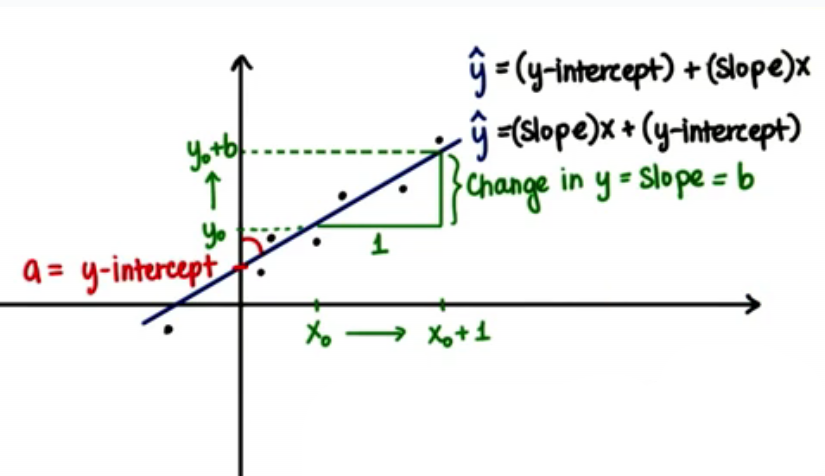 ŷ = (y-intercept) + (slope)x
ŷ =(slope)x + (y-intercept)
y₀+b
↑
y₀
Change in y = slope = b
1
a = y-intercept
x₀ ⟶ x₀+1